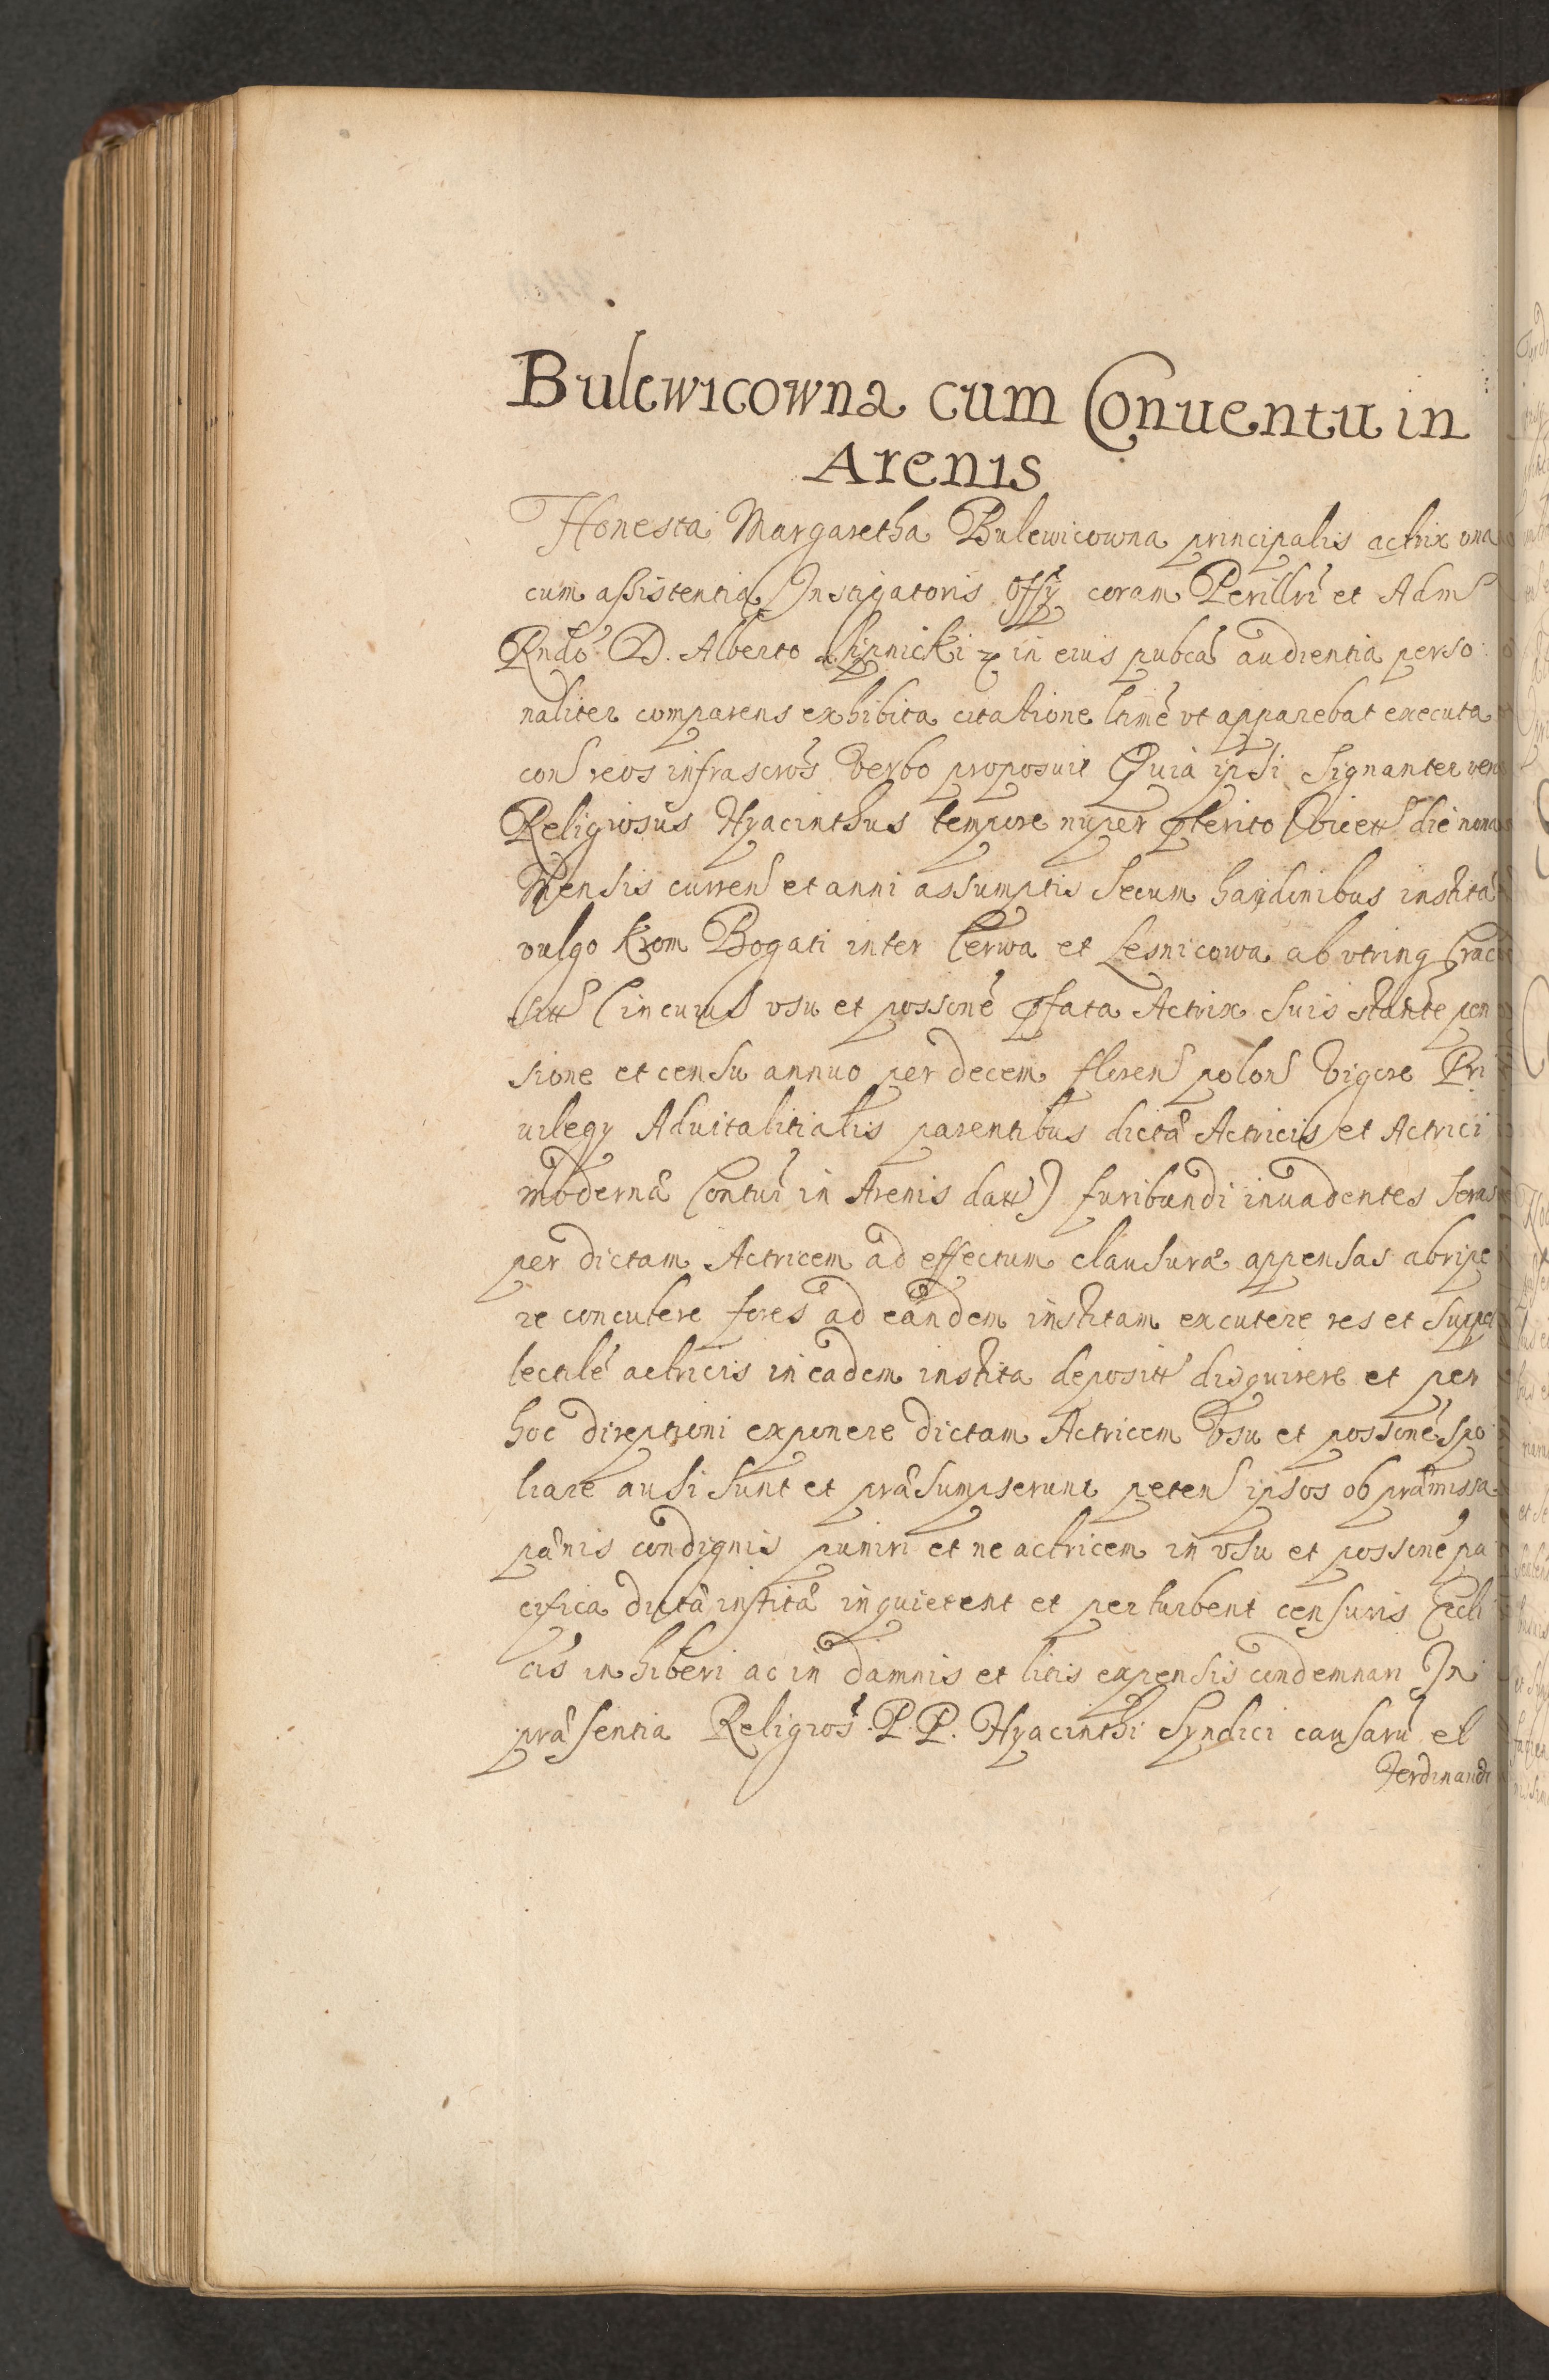 Bulewicowna cum Conuentu in
Arenis
Honesta Margaretha Bulewicowna principalis actrix una
cum assistentia Instigatoris Offy coram Perillri et Adm
Rndo D. Alberto Lipnicki in eius pubca audientia perso
naliter comparens exhibita citatione ltime ut apparebat executa
con reos infrascros verbo proposuit Quia ipsi signanter ven
Religiosus Hyacinthus tempore nuper pterito die nona
Mensis curren et anni assumptis secum haydinibus instita
vulgo Krom Bogati inter Cerwa et Lesnicowa ab vtrinq Crac
sitt (in cuius vsu et possone pfata Actrix suis stante pen
sione et censu annuo per decem floren polon vigore Pri
uilegy Aduitalitialis parentibus dicta Actricis et Actrici
moderna Contui in Arenis datt) furibundi inuadentes seras
per dictam Actricem ad effectum clausuræ appensas abripe
re concutere fores ad eandem institam excutere res et suppel
lectile actricis in eadem instita depositt disquirere et per
hoc direptioni exponere dictam Actricem vsu et possone spo
liare ausi sunt et præsumpserunt peten ipsos ob præmissa
pænis condignis puniri et ne actricem in vsu et possone pa
cifica dicta instita inquietent et perturbent censuris Eccli
cis inhiberi ac in damnis et litis expensis condemnari In
præsentia Religios P. P. Hyacinthi Syndici causaru et
Ferdinandi